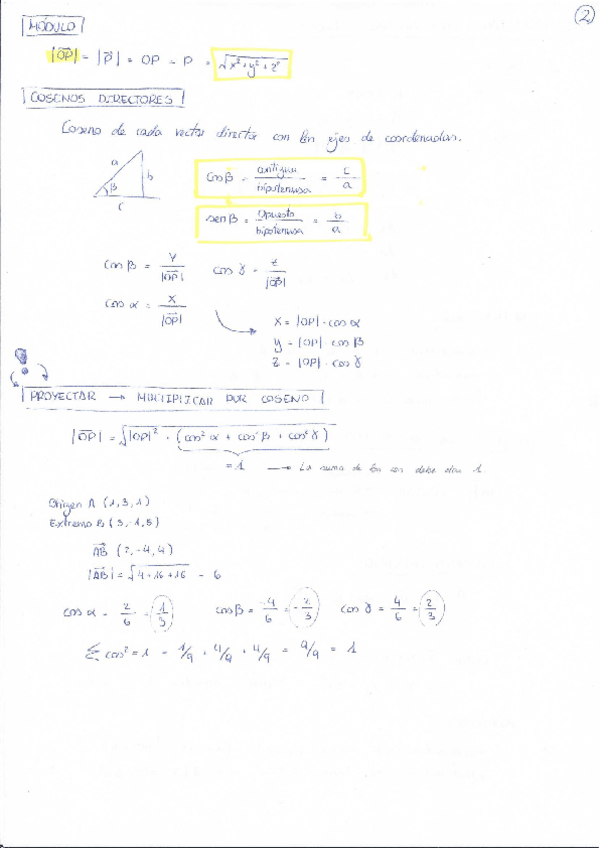 2
MÓDULO
|OP| = |P| = OP = P = √x²+y²+z²
COSENOS DIRECTORES
Coseno de cada vector director con los ejes de coordenadas.
a
β
b
c
cos β = contiguo/hipotenusa = c/a
sen β = opuesto/hipotenusa = b/a
cos β = y/|OP| cos γ = z/|OP|
cos α = x/|OP|
x = |OP| · cos α
y = |OP| · cos β
z = |OP| · cos γ
PROYECTAR → MULTIPLICAR POR COSENO
|OP| = √|OP|² · (cos² α + cos² β + cos² γ)
= 1 → La suma de los cos debe dar 1
Origen A (1,3,1)
Extremo B (3,-1,5)
AB (2,-4,4)
|AB| = √4+16+16 = 6
cos α = 2/6 = 1/3 cos β = -4/6 = -2/3 cos γ = 4/6 = 2/3
Σ cos² = 1 = 1/9 + 4/9 + 4/9 = 9/9 = 1